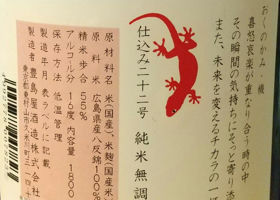 おくのかみ、優
喜怒哀楽が重なり合う時の中
その瞬間の気持ちにそっと寄り添
また、未来を変えるチカラの一
仕込み二十二号 純米無調
原材料名 米(国産)、米麹(国産米
原料米 広島県産八反錦100%
精米歩合 55%
アルコール分 16度 内容量 1800
保存方法 低温管理
製造年月 表ラベルに記載
製造者 豊島屋酒造株式会社
東京都東村山市久米川町三-一四-